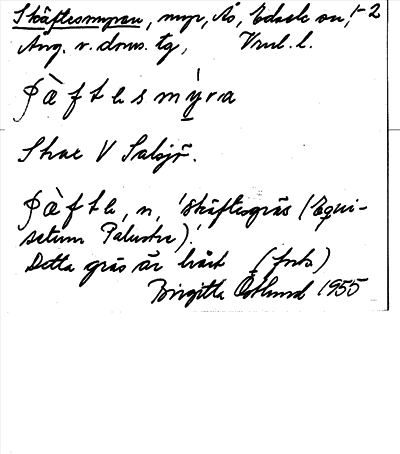 Skäftesmyran, myr, Ås, Edsele sn, 1-2
Ång. v. doms. tg, Vrml. l.
ʃὰftesmýra
Strax V Salsjö.
ʃὰfte, n, 'skäftesgräs (Equi-
setum Palustre).'
Detta gräs är hårt
Birgitta Östlund 1955